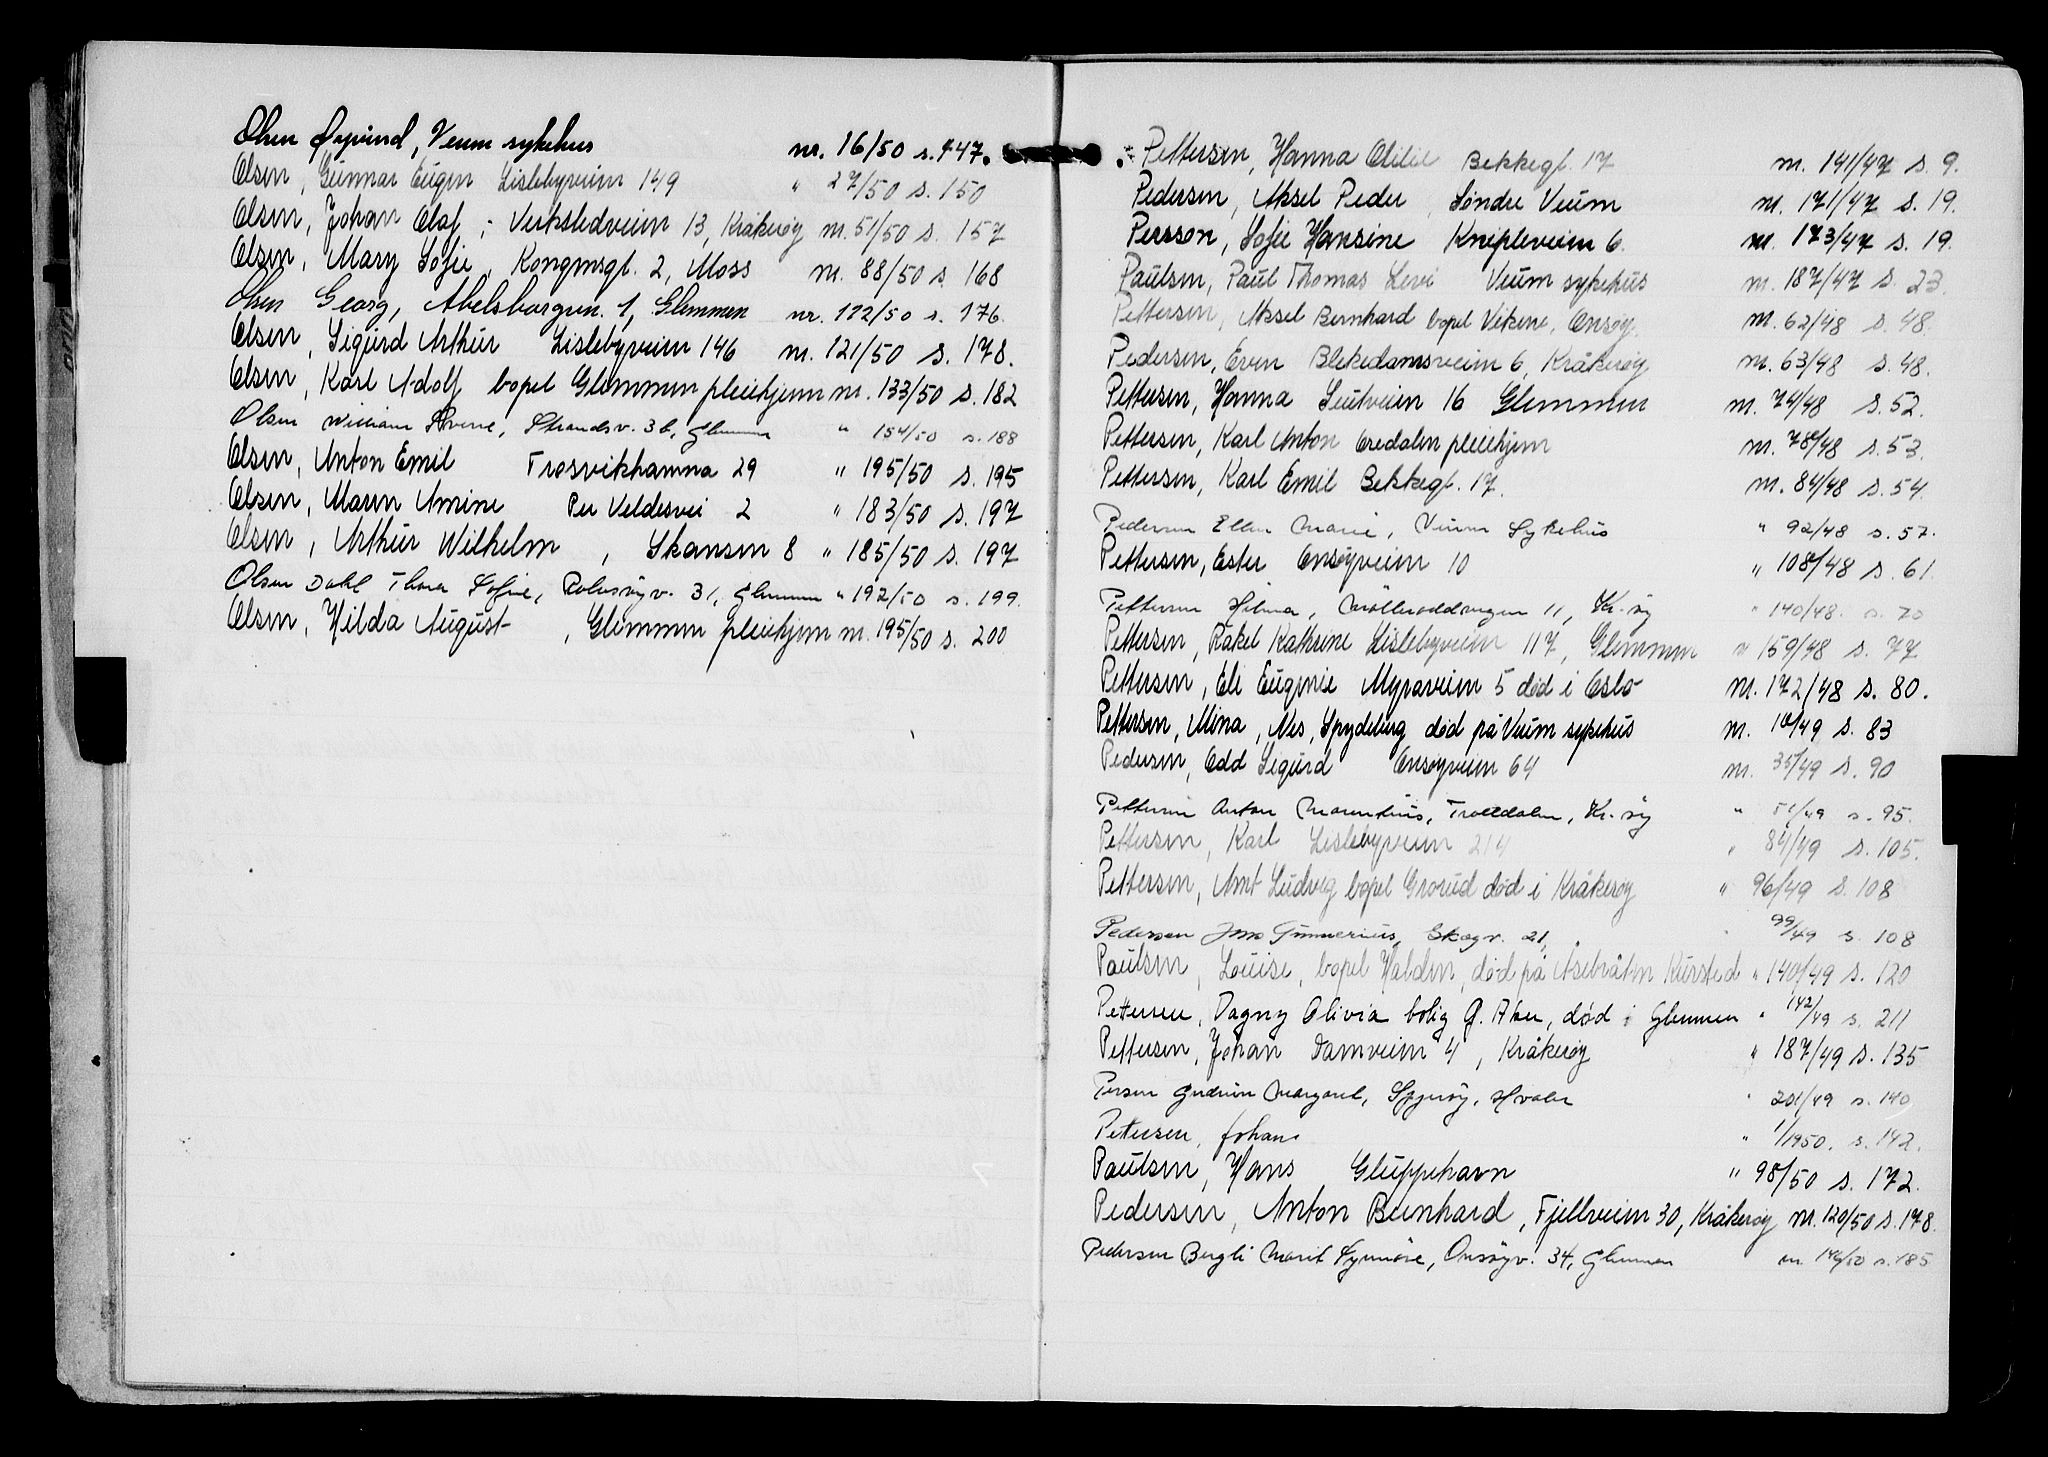 Olsen Øyvind, Veum sykehus nr. 16/50 s. 147.
Olsen, Gunnar Eugen Lislebyveien 149 " 27/50 s. 150
Olsen, Johan Olaf, Verkstedveien 13, Kråkerøy nr. 51/50 s. 157
Olsen, Mary Sofie, Kongensgt. 2, Moss nr. 88/50 s. 168
Olsen Georg, Abelsborgvn. 1, Glemmen nr. 112/50 s. 176.
Olsen, Sigurd Arthur Lislebyveien 146 nr. 121/50 s. 178.
Olsen, Karl Adolf bopel Glemmen pleiehjem nr. 133/50 s. 182
Olsen William Sverre, Strandv. 36, Glemmen " 154/50 s. 188
Olsen, Anton Emil Trosvikhamna 29 " 195/50 s. 195
Olsen, Maren Amine Per Veldesvei 2 " 183/50 s. 197
Olsen, Arthur Wilhelm, Skansen 8 " 185/50 s. 197
Olsen Dahl Thora Sofie, Rolvsøyv. 31, Glemmen " 192/50 s. 199.
Olsen, Hilda August, Glemmen pleiehjem nr. 195/50 s. 200
Pettersen, Hanna Otilie Bekkegt. 17 nr. 141/47 s. 9.
Pedersen, Aksel Peder, Søndre Veum nr. 171/47 s. 19.
Persson, Sofie Hansine Knipleveien 6. nr. 173/47 s. 19.
Paulsen, Paul Thomas Levi Veum sykehus nr. 187/47 s. 23.
Pettersen, Aksel Bernhard bopel Vikene, Onsøy. nr. 62/48 s. 48.
Pedersen, Even Blekedamsveien 6, Kråkerøy nr. 63/48 s. 48.
Pettersen, Hanna Lutveien 16 Glemmen nr. 74/48 s. 52.
Pettersen, Karl Anton Oredalen pleiehjem nr. 78/48 s. 53.
Pettersen, Karl Emil Bekkegt. 17. nr. 84/48 s. 54.
Pedersen Ellen Marie, Veum Sykehus " 92/48 s. 57.
Pettersen, Ester Onsøyveien 10 " 108/48 s. 61.
Pettersen Helma, Mölleroddvegen 11, Kr.øy " 140/48. s. 70
Pettersen, Rakel Kathrine Lislebyveien 117, Glemmen " 159/48 s. 77
Pettersen, Eli Eugenie Myraveien 5 død i Oslo nr. 172/48 s. 80.
Pettersen, Mina, Nes, Spydeberg død på Veum sykehus nr. 10/49 s. 83
Pedersen, Odd Sigurd Onsøyveien 64 nr. 35/49 s. 90
Pettersen Anton Marentius, Trolldalen, Kr.øy " 51/49 s. 95.
Pettersen, Karl Lislebyveien 214 " 84/49 s. 105.
Pettersen, Arnt Ludvig bopel Grorud død i Kråkerøy " 96/49 s. 108
Pedersen Jens Gunnerius, Skogv. 21, " 99/49 s. 108
Paulsen, Louise, bopel Halden, død på Åsebråten Kursted " 140/49 s. 120
Pettersen, Dagny Olivia bolig Ø. Aker, død i Glemmen " 142/49 s. 211
Pettersen, Johan Damveien 4, Kråkerøy " 187/49 s. 135
Persen Gudrun Margaret, Spjærøy, Hvaler " 201/49 s. 140
Pettersen, Johan " 1/1950. s. 142.
Paulsen, Hans Gluppehavn " 98/50 s. 172.
Pedersen, Anton Bernhard, Fjellveien 30, Kråkerøy nr. 120/50 s. 178.
Pedersen Bergli Marit Synnöve, Onsöyv. 34, Glemmen nr. 146/50 s. 185